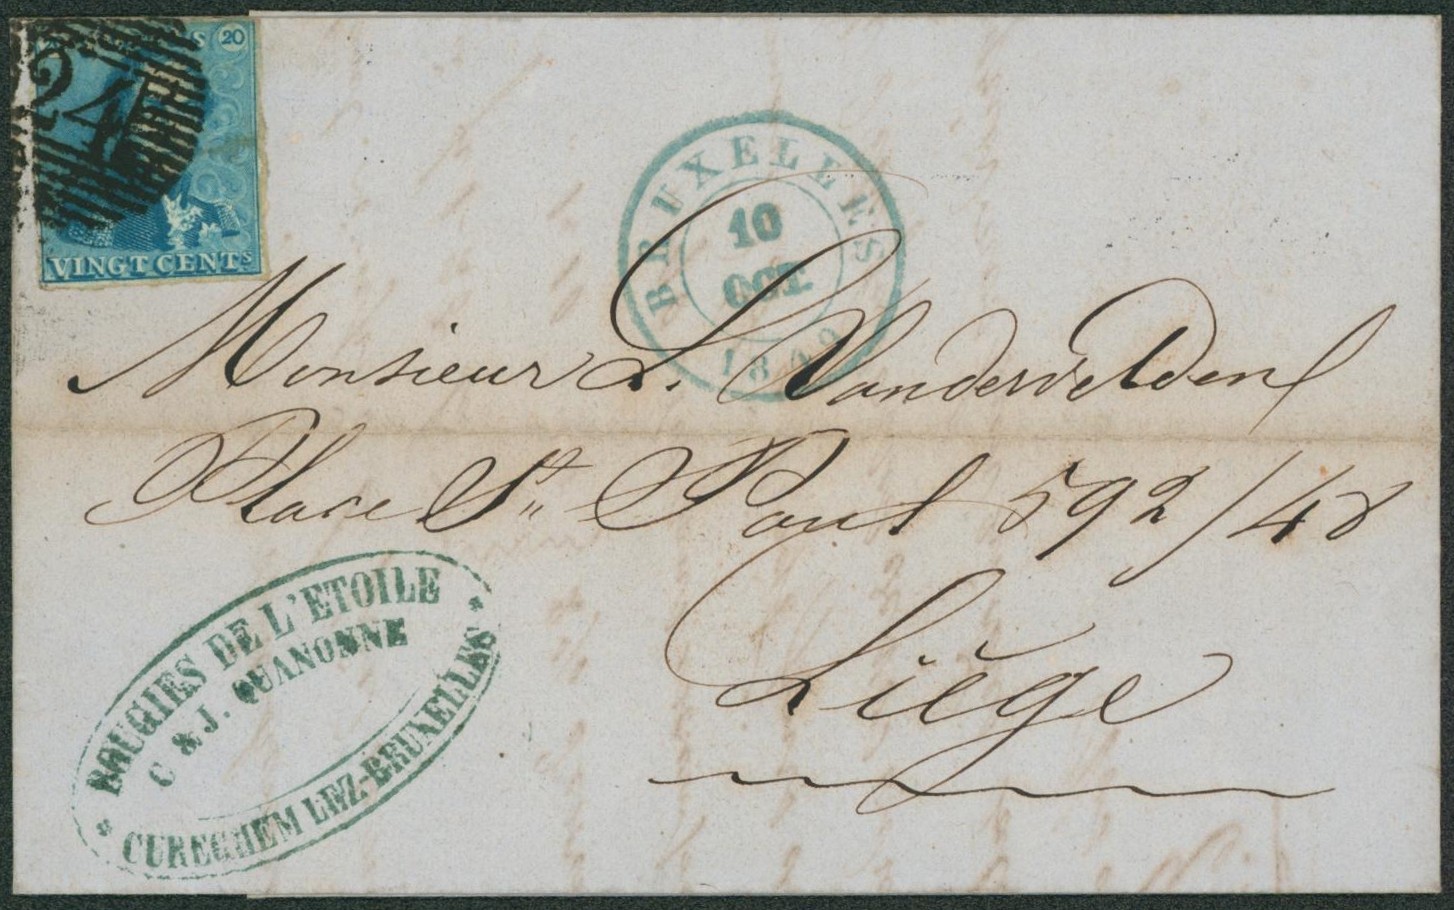 20
24
VINGT CENTS
BRUXELLES
10
OCT.
Monsieur L. Vandervelden
Place St Paul 592/48
Liège
BOUGIES DE L'ETOILE
C & J. QUANONNE
CUREGHEM LEZ-BRUXELLES